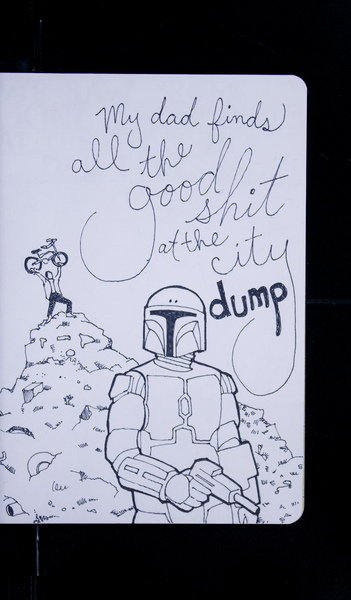 My dad finds
all the
good shit
at the city
dump